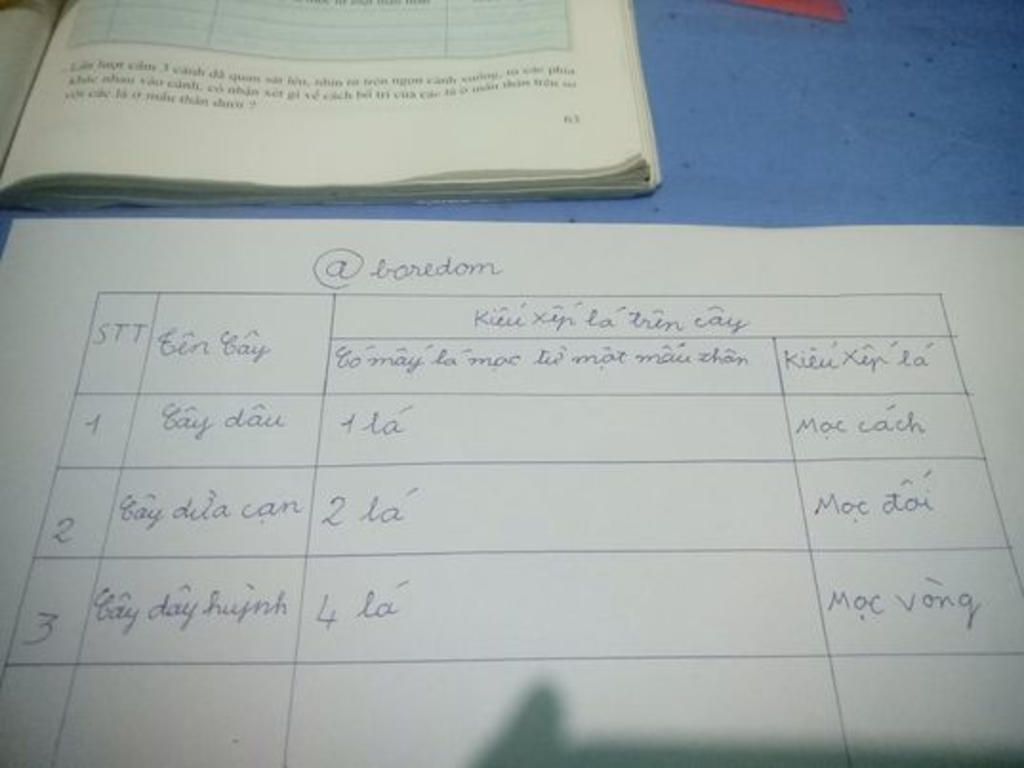 Lần lượt cầm 3 cành đã quan sát lên, nhìn từ trên ngọn cành xuống, từ các phía
khác nhau vào cành, có nhận xét gì về cách bố trí của các lá ở mấu thân trên so
với các lá ở mấu thân dưới ?
63
@ boredom
STT Tên Cây Kiểu xếp lá trên cây
Có mấy lá mọc từ một mấu thân Kiểu xếp lá
1 Cây dâu 1 lá Mọc cách
2 Cây dừa cạn 2 lá Mọc đối
3 Cây dây huỳnh 4 lá Mọc vòng